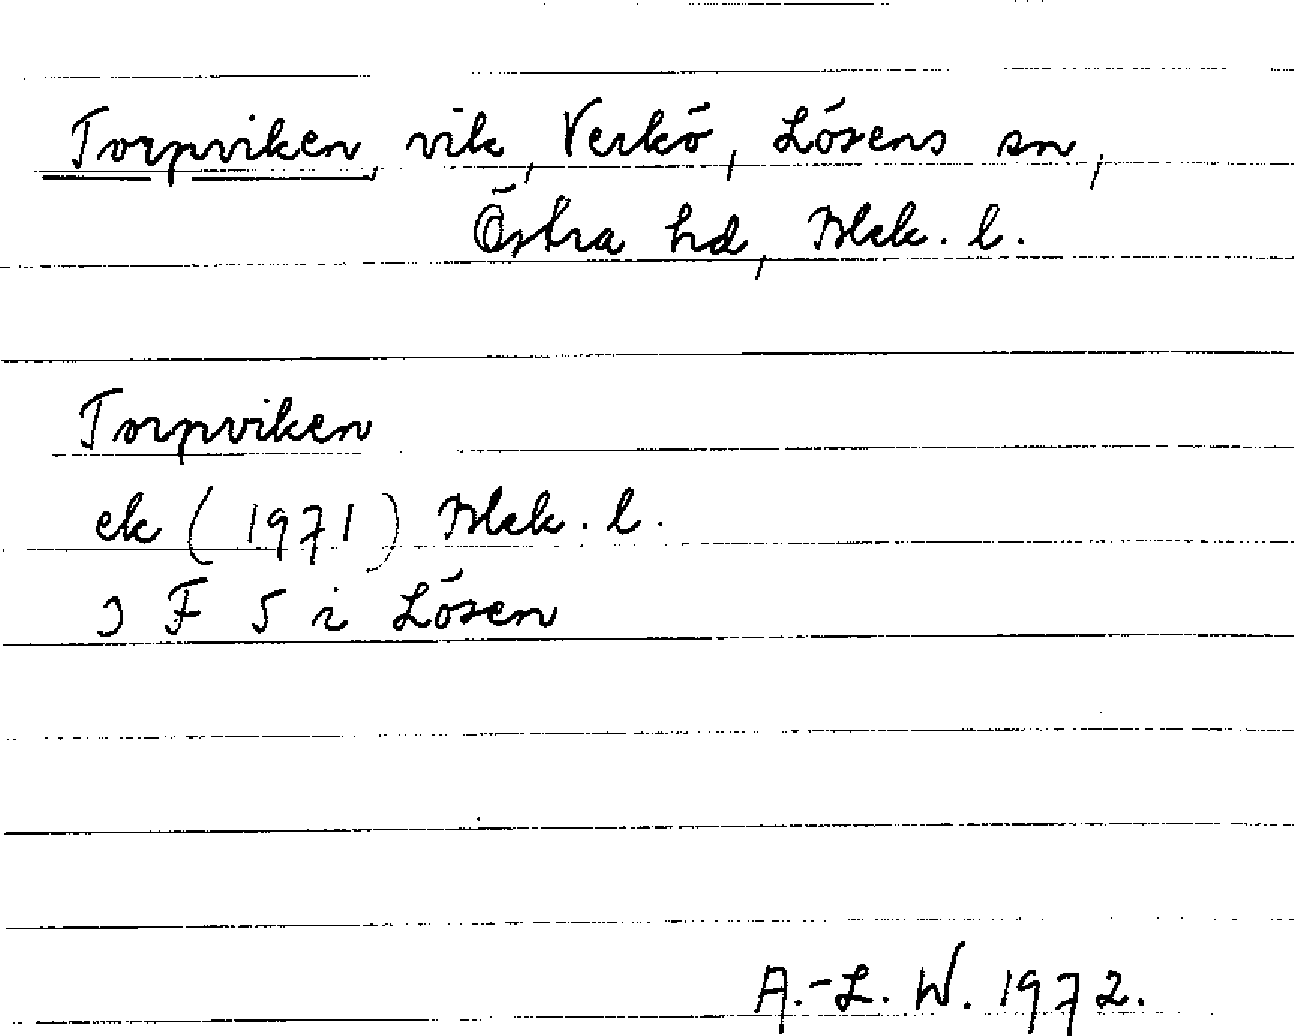 Torpviken, vik, Verkö, Lösens sn,
Östra hd, Blek. l.
Torpviken
ek (1971) Blek. l.
3 F 5 i Lösen
A.-L. W. 1972.